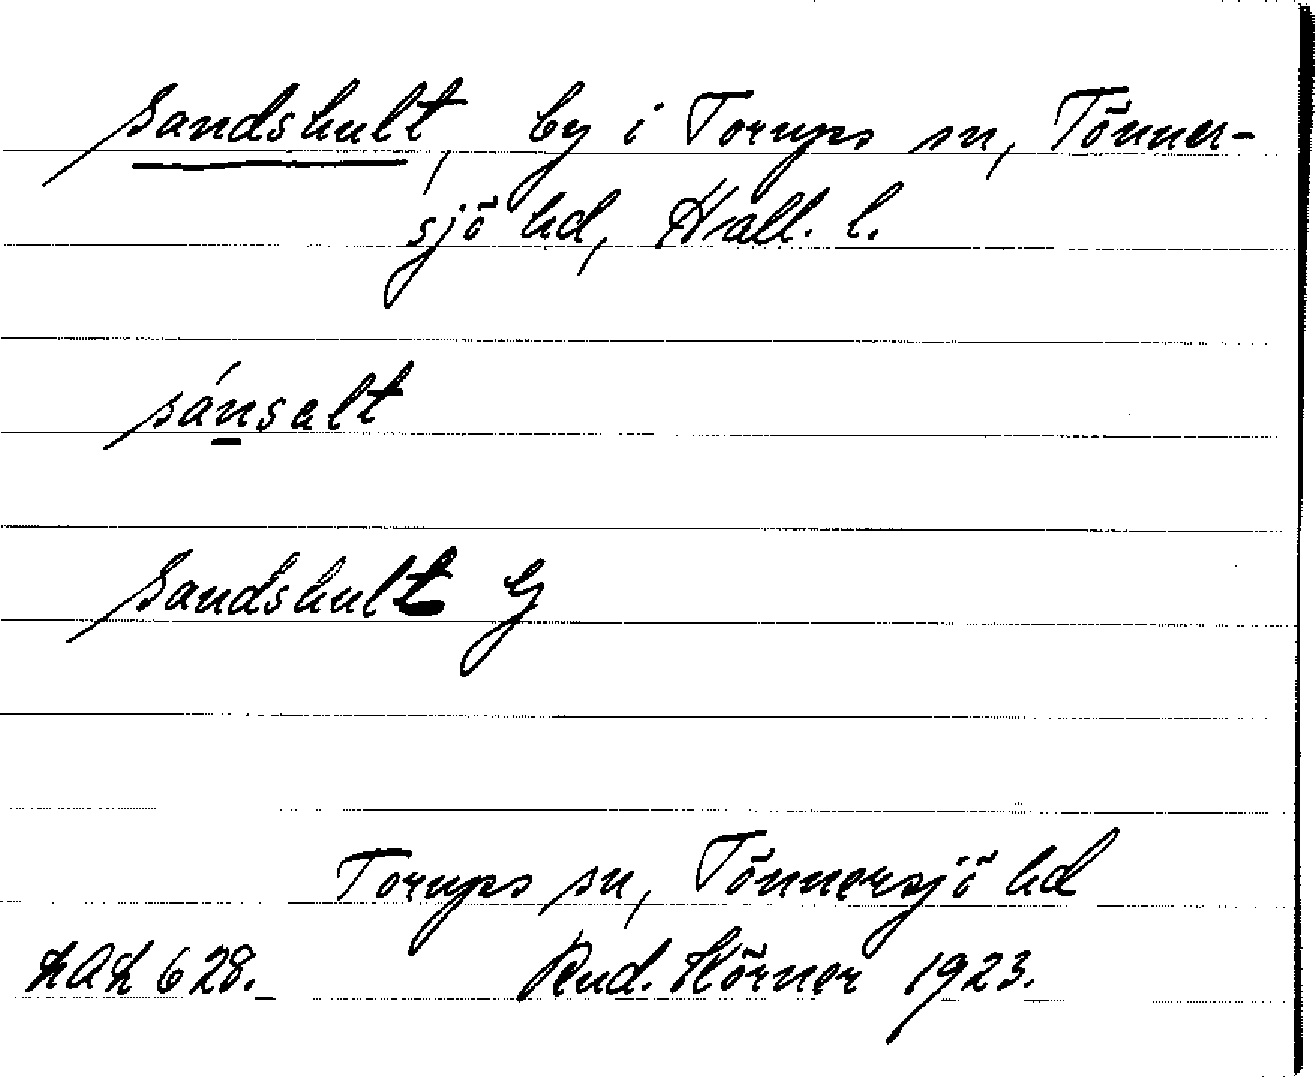 Sandshult, by i Torups sn, Tönner-
sjö hd, Hall. l.
sánsalt
Sandshult
Torups sn, Tönnersjö hd
LAL 628. Rud. Hörner 1923.